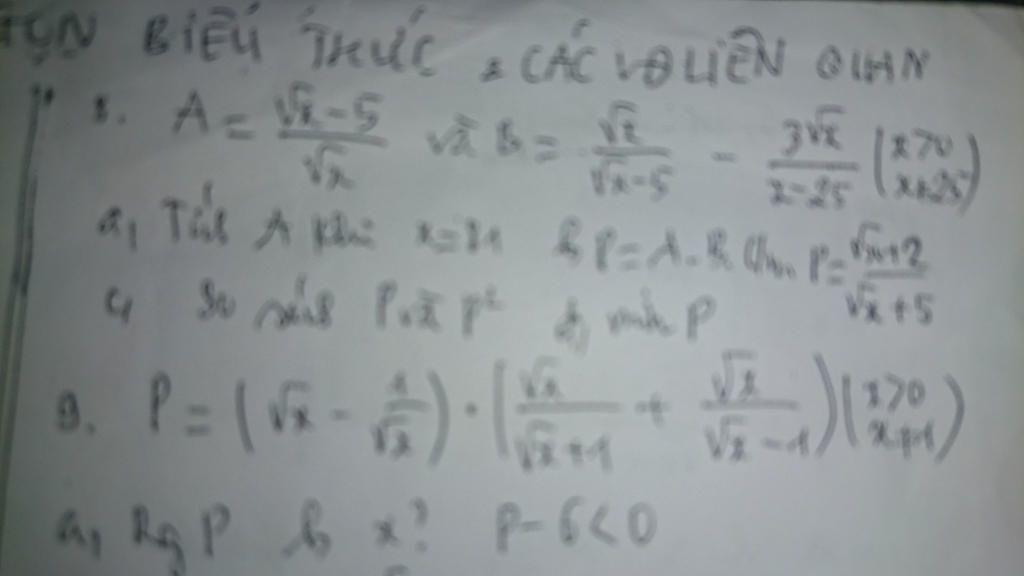 BIỂU THỨC & CÁC VĐ LIÊN QUAN
8. A = (√x - 5)/√x và B = √x/(√x - 5) - 3√x/(x - 25) (x > 0 x ≠ 25)
a, Tính A khi x = 81 b, P = A.B. C/m P = (√x + 2)/(√x + 5)
c, So sánh P và P² d, min P
9. P = (√x - 1/√x) . (√x/(√x + 1) + √x/(√x - 1)) (x > 0 x ≠ 1)
a, Rg P b, x? P - 6 < 0